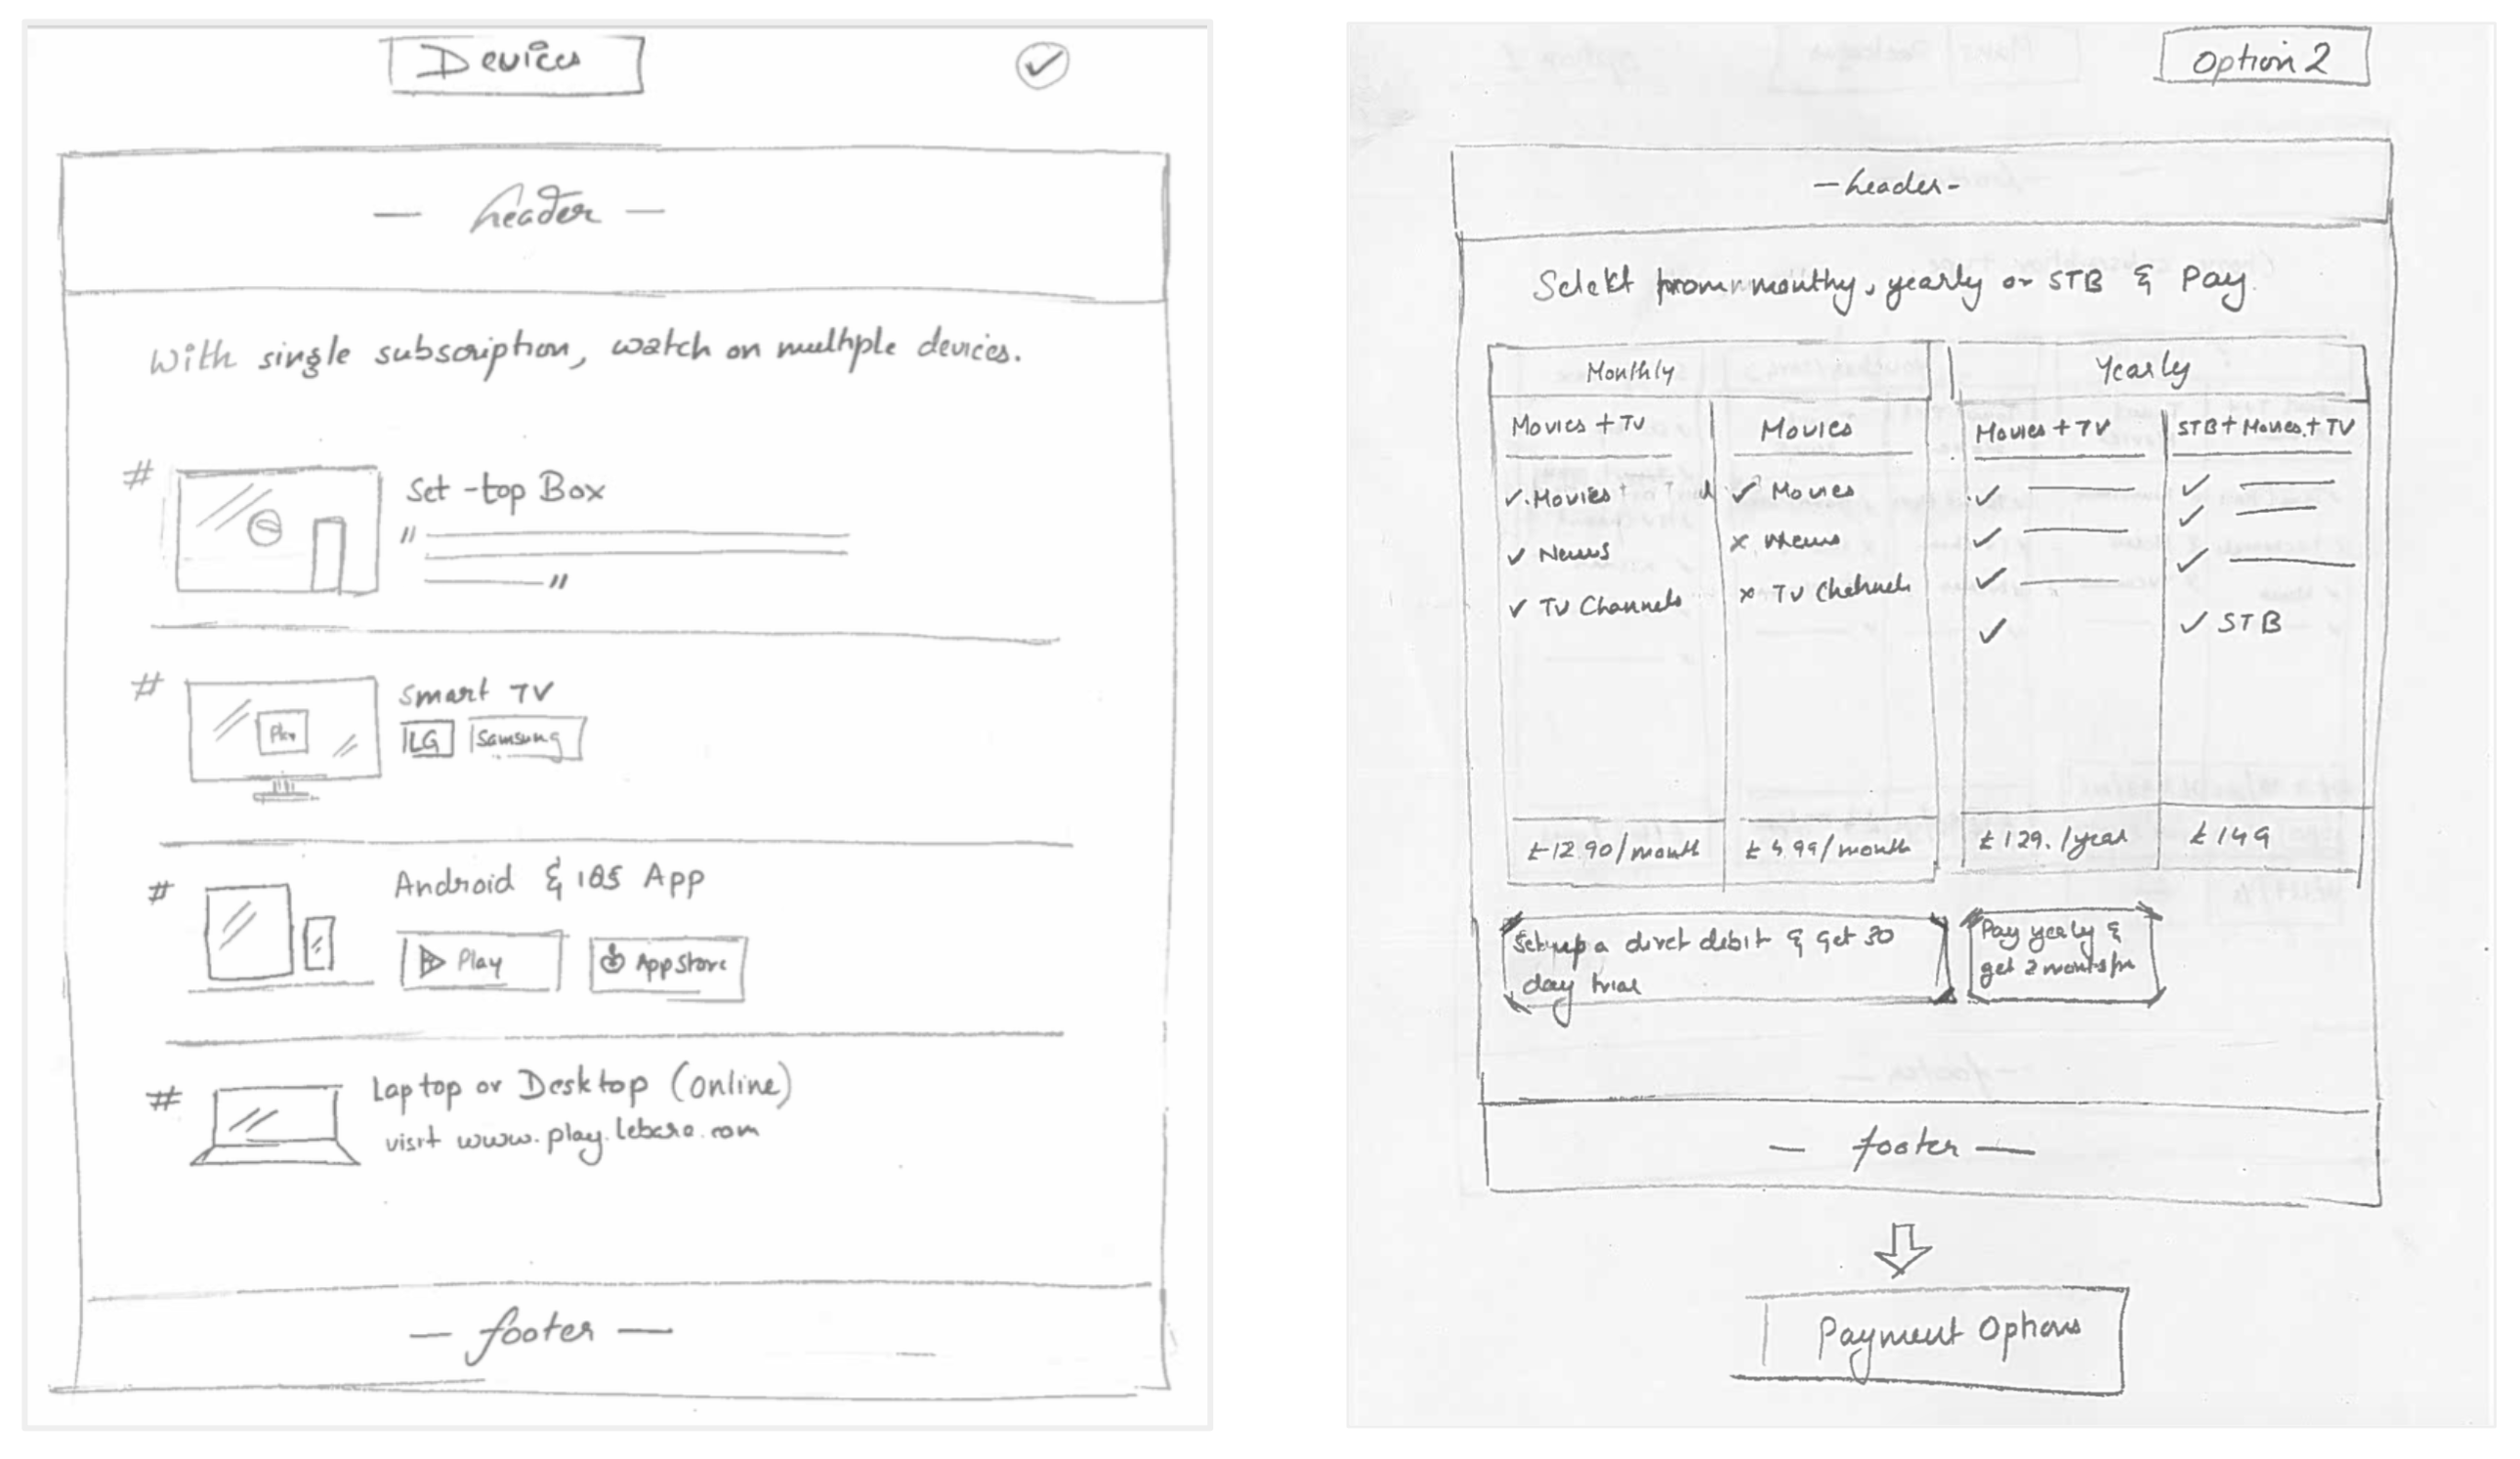 Devices
— header —
With single subscription, watch on multiple devices.
# Set-top Box
"
"
# Smart TV
Play
LG Samsung
# Android & iOS App
Play
App Store
# Laptop or Desktop (online)
visit www.play.lebara.com
— footer —
Option 2
— header -
Selekt from monthy, yearly or STB & Pay.
Monthly Yearly
Movies + TV Movies Movies + TV STB + Movies + TV
✓ Movies ✓ Movies ✓ ✓
✓ News × News ✓ ✓
✓ TV Channels × TV Channels ✓ ✓
✓ ✓ STB
£12.90/month £4.99/month £129./year £149
Set up a divct debit & get 30
day trial
Pay yearly &
get 2 months
— footer —
Payment Options